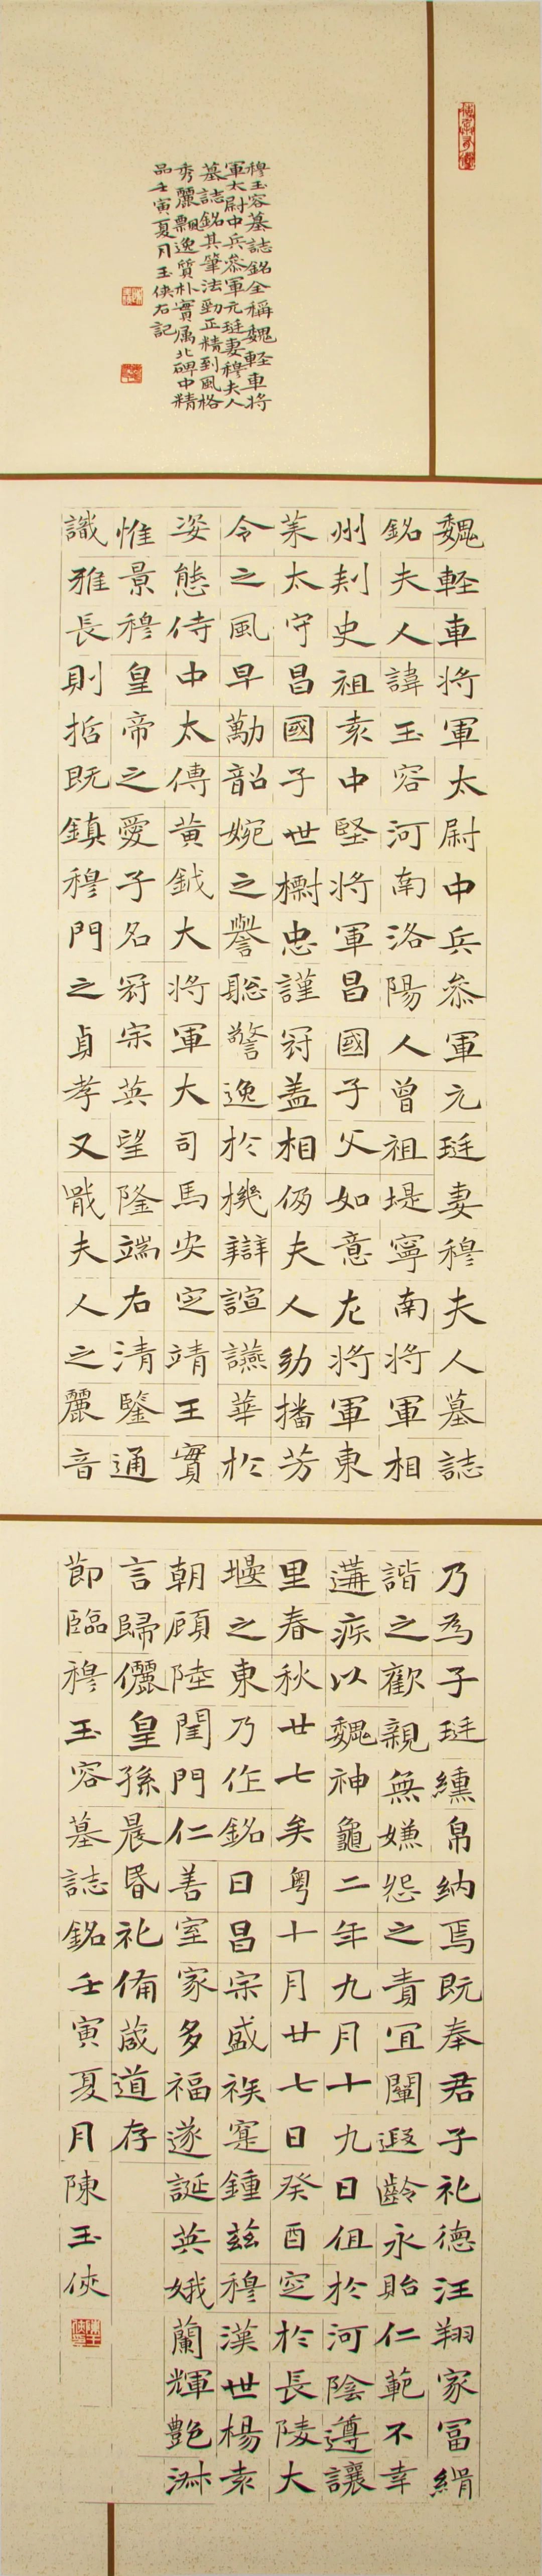 穆玉容墓誌銘全稱魏輕車將
軍太尉中兵叅軍元珽妻穆夫人
墓誌銘其筆法勁正精到風格
秀麗飄逸質朴實属北碑中精
品壬寅夏月玉俠右記
魏輕車將軍太尉中兵叅軍元珽妻穆夫人墓誌
銘夫人諱玉容河南洛陽人曾祖堤寧南將軍相
州刾史祖袁中堅將軍昌國子父如意左將軍東
莱太守昌國子世櫉忠謹冠盖相仍夫人幼播芳
令之風早勱韶婉之譽聡警逸於機辯諠讌華於
姿態侍中太傅黄鉞大將軍大司馬安定靖王實
惟景穆皇帝之愛子名冠宗英望隆端右清鑒通
識雅長則哲既鎮穆門之貞孝又戢夫人之麗音
乃為子珽纁帛納焉既奉君子礼德汪翔家冨緝
諧之歡親無嫌怨之責宜闡遐齡永貽仁範不幸
遘疾以魏神龜二年九月十九日俎於河陰遵讓
里春秋廿七矣粤十月廿七日癸酉定於長陵大
堰之東乃作銘曰昌宗盛族寔鍾兹穆漢世楊袁
朝頋陸閨門仁善室家多福遂誕英娥蘭輝艶淋
言歸儷皇孫晨昏礼俻葴道存
節臨穆玉容墓誌銘壬寅夏月陳玉俠